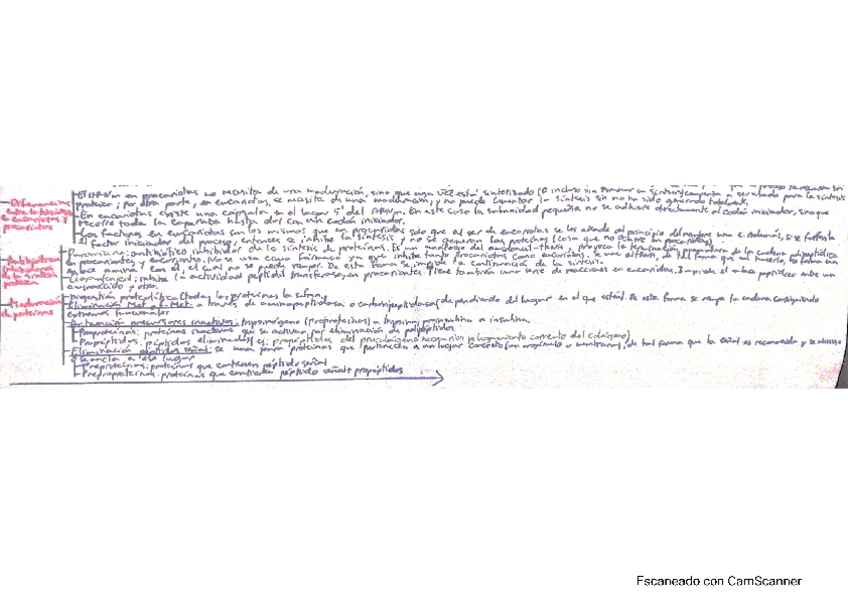 Diferencias entre la traducción en eucariotas y procariotas
El ARNm en procariotas no necesita de una maduración, sino que una vez está sintetizado (o incluso sin terminar su síntesis) comienza a ser usado para la síntesis
proteica; por otra parte, en eucariotas, se necesita de una maduración, y no puede comenzar la síntesis sin no ha sido generado totalmente.
En eucariotas existe una cápsula en el lugar 5' del ARNm. En este caso la subunidad pequeña, no se adhiere directamente al codón iniciador, sino que
recorre toda la caperuza hasta dar con un codón iniciador.
Los factores en eucariotas son los mismos que en procariotas solo que al ser de eucariotas se les añade al principio del nombre una e. Además, si se fosforila
el factor iniciador del proceso, entonces se inhibe la síntesis y no se generan las proteínas (cosa que no ocurre en procariotas).
Antibióticos inhibidores de la síntesis proteica
Puromicina: antibiótico inhibidor de la síntesis de proteínas. Es un análogo del aminoacil-ARNt, provoca la terminación prematura de la cadena polipeptídica
en procariontes y eucariontes. No se usa como fármaco ya que inhibe tanto procariotas como eucariotas. Se une al ribosoma, de tal forma que al hacerlo, se forma un
enlace amina con él, el cual no se puede romper. De esta forma se impide la continuación de la síntesis.
Cloranfenicol: inhibe la actividad peptidil transferasa, en procariontes. Tiene también una serie de reacciones en eucariotas. Impide el enlace peptídico entre un
aminoácido y otro.
Maduración de proteínas
Digestión proteolítica (todas las proteínas la sufren)
Eliminación Met o f-Met: a través de aminopeptidasa o carboxipeptidasa, dependiendo del lugar en el que esté. De esta forma se rompe la cadena consiguiendo
extremos funcionales
Activación precursores inactivos: tripsinógeno (proproteínas) a tripsina, proinsulina a insulina.
Proproteínas: proteínas inactivas que se activan por eliminación de polipéptidos
Propéptidos: péptidos eliminados (ej: propéptidos del procolágeno necesarios plegamiento correcto del colágeno)
Eliminación péptidos señal: se una para proteínas que pertenecen a un lugar concreto (un orgánulo o membrana), de tal forma que la señal es reconocida y se elimina
secuencia a ese lugar
Preproteínas: proteínas que contienen péptido señal
Preproproteínas: proteínas que contienen péptido señal + propéptidos
Escaneado con CamScanner